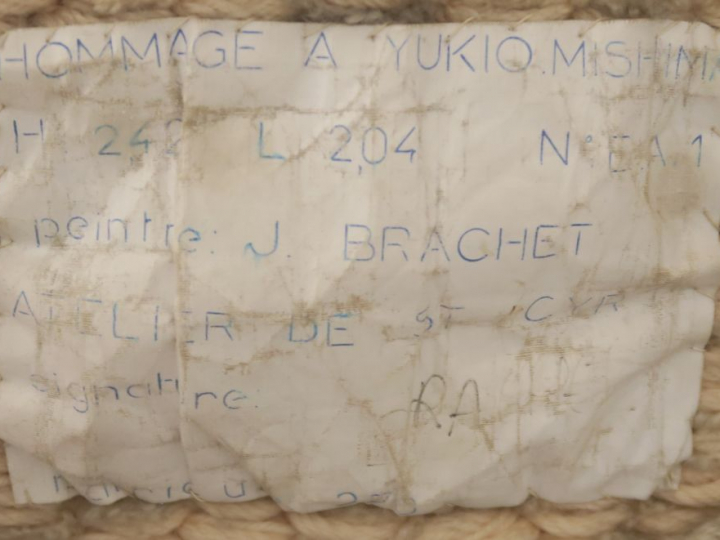 HOMMAGE A YUKIO.MISHIMA
H 2,42 L 2,04 N° E.A.1
peintre: J. BRACHET
ATELIER DE ST CYR
signature: